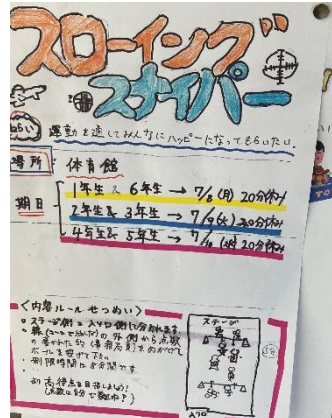 スローイング
スナイパー
ねらい 運動を通してみんなにハッピーになってもらいたい。
場所 体育館
期日
1年生&6年生→7/8(月)20分休み
2年生&3年生→7/9(火)20分休み
4年生&5年生→7/10(水)20分休み
<内容ルールせつめい>
・ステージ側と入り口側に分かれます
の外側から点数
ボールを投げて下さい。
・制限時間は 分間です。
高得点を目指しましょう!
ステージ
入り口